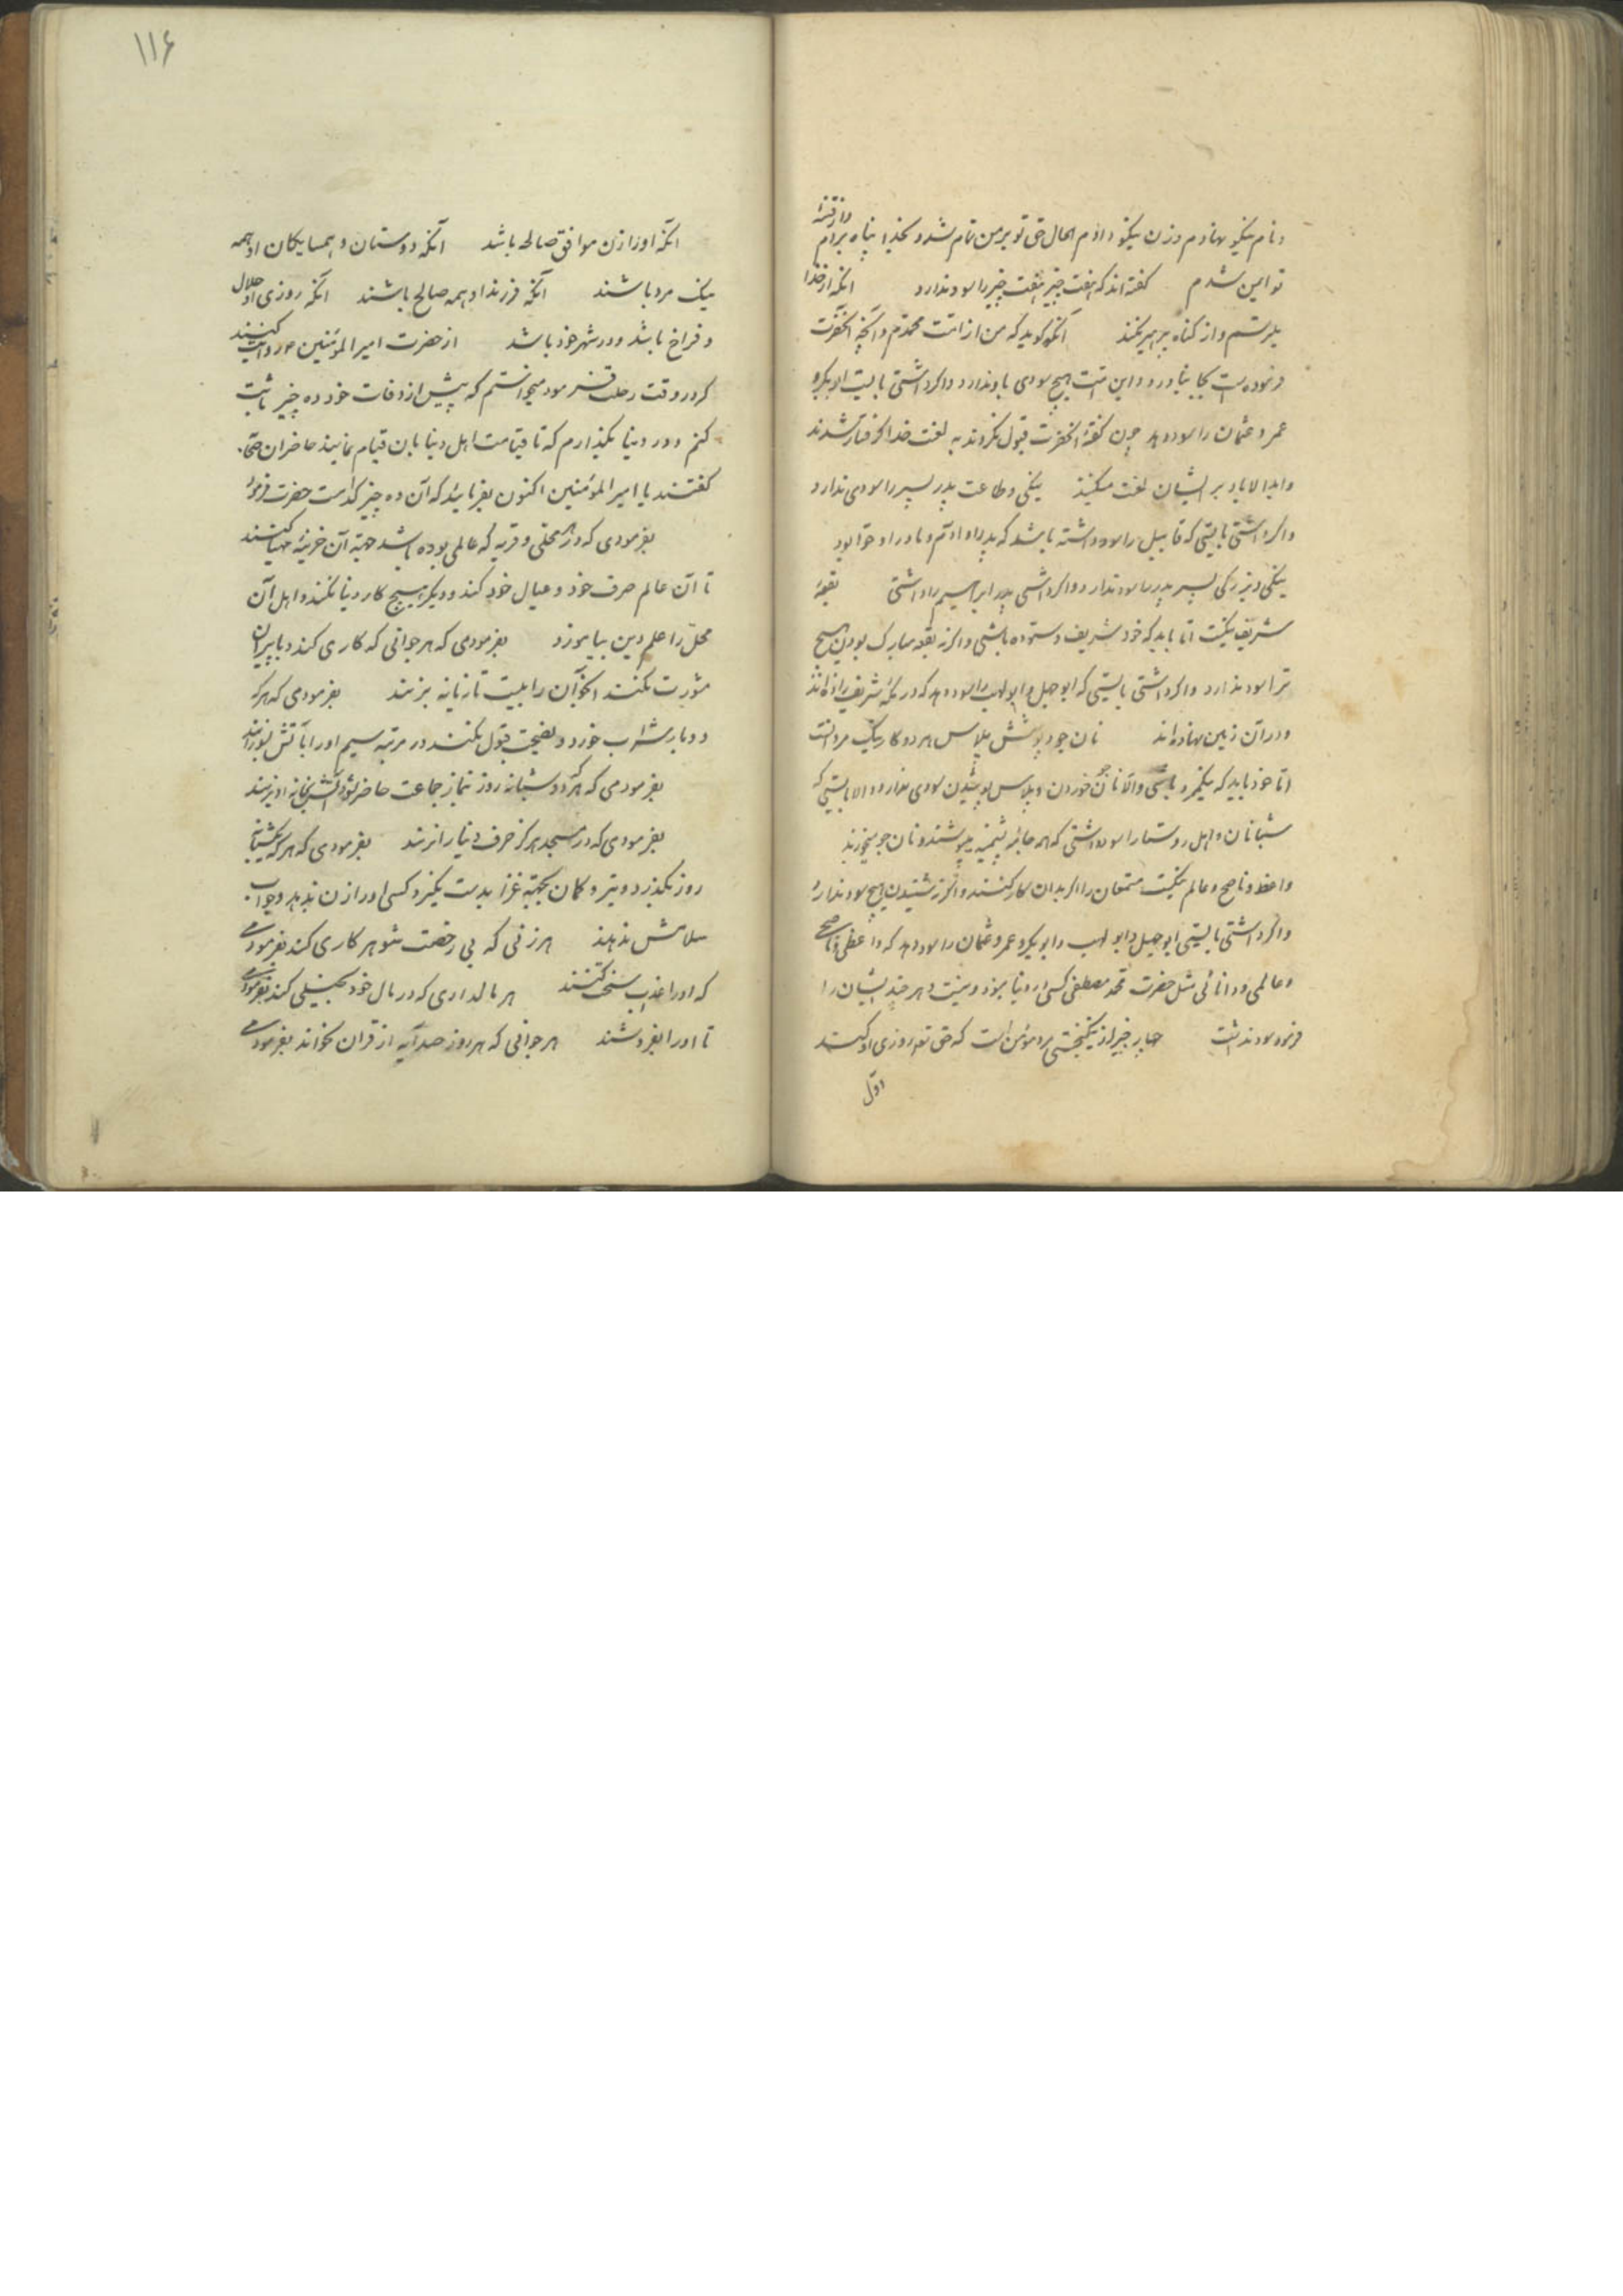 و نام نیکو نهادم و زن نیکو دادم الحال حق تو بر من تمام شد و بخدا پناه بردم و از فتنهٔ
تو ایمن شدم گفته‌اند که هفت چیز هفت چیز را سود ندارد آنکه از خدا
بترسم و از گناه پرهیز نکند آنکه گوید که من از امت محمدم و آنچه آنحضرت
فرموده است بجا نیاورد و این امت هیچ سودی باو ندارد و اگر داشتی بایست ابوبکر و
عمر و عثمان را سود دهد چون گفتهٔ آنحضرت قبول نکردند به لعنت خدا گرفتار شدند
و ابدالاباد بر ایشان لعنت میکنند نیکی و طاعت پدر پسر را سودی ندارد
و اگر داشتی بایستی که قابیل را سود داشته باشد که پدر او آدم و مادر او حوا بود
نیکی و بزرگی پسر پدر را سود ندارد و اگر داشتی پدر ابراهیم را داشتی بقعهٔ
شریف نیکست اما باید که خود شریف و ستوده باشی و اگرنه بقعه مبارک بودن هیچ
ترا سود ندارد و اگر داشتی بایستی که ابوجهل و ابولهب را سود دهد که در مکهٔ شریف زاده‌اند
و در آن زمین نهاده‌اند نان جو و پوشش پلاس هر دو کار نیک مردانست
اما خود باید که نیکمرد باشی و الا نان جو خوردن و پلاس پوشیدن سودی ندارد و الا بایستی که
شبانان و اهل روستا را سود داشتی که همه جامه پشمینه پوشند و نان جو میخورند
واعظ و ناصح و عالم نیکست مستمعان را اگر بدان کار کنند و اگرنه شنیدن هیچ سود ندارد
و اگر داشتی بایستی ابوجهل و ابولهب و ابوبکر و عمر و عثمان را سود دهد که واعظی و ناصحی
و عالمی و دانائی مثل حضرت محمد مصطفی کسی در دنیا نبود و نیست و هر چند ایشان را
فرمود سود نداشت چهار چیز از نیکبختی مرد مؤمن است که حق تعم روزی او کند
اول
۱۱۶
آنکه او را زن موافق صالحه باشد آنکه دوستان و همسایکان او همه
نیک مرد باشند آنکه فرزند او همه صالح باشند آنکه روزی او حلال
و فراخ باشد و در شهر خود باشد از حضرت امیرالمؤمنین ع روایت کنند
که در وقت رحلت فرمود میخواستم که پیش از وفات خود ده چیز ثابت
کنم و در دنیا بگذارم که تا قیامت اهل دنیا بآن قیام نمایند حاضران
گفتند یا امیرالمؤمنین اکنون بفرمائید که آن ده چیز کدامست حضرت فرمود
بفرمودی که در هر محلتی و قریه که عالمی بوده باشد جهة آن خزینه مهیا کنند
تا آن عالم صرف خود و عیال خود کند و دیگر هیچ کار دنیا نکند و اهل آن
محل را علم دین بیاموزد بفرمودمی که هر جوانی که کاری کند و با پیران
مشورت نکند آنجوان را بیست تازیانه بزنند بفرمودمی که هر که
دو بار شراب خورد و نصیحت قبول نکند در مرتبه سیم او را بآتش بسوزانند
بفرمودمی که هر که در شبانه روز بنماز جماعت حاضر نشود آتش بخانه او بزنند
بفرمودمی که در مسجد هرگز حرف دنیا نزنند بفرمودی که هر که یکشبانه
روز بگذرد و تیر و کمان بجهته غزا بدست نگیرد کسی او را زن ندهد و جواب
سلامش ندهند هر زنی که بی رخصت شوهر کاری کند بفرمودمی
که او را عذاب سخت کنند هر مالداری که در مال خود بخیلی کند بفرمودمی
تا او را بفروشند هر جوانی که هر روز صد آیه از قران نخواند بفرمودمی